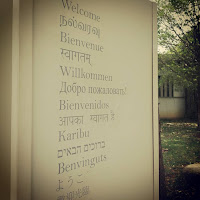 Welcome
நல்வரவு
Bienvenue
स्वागतम्
Willkommen
Добро пожаловать!
Bienvenidos
आपका स्वागत है
Karibu
ברוכים הבאים
Benvinguts
ようこそ